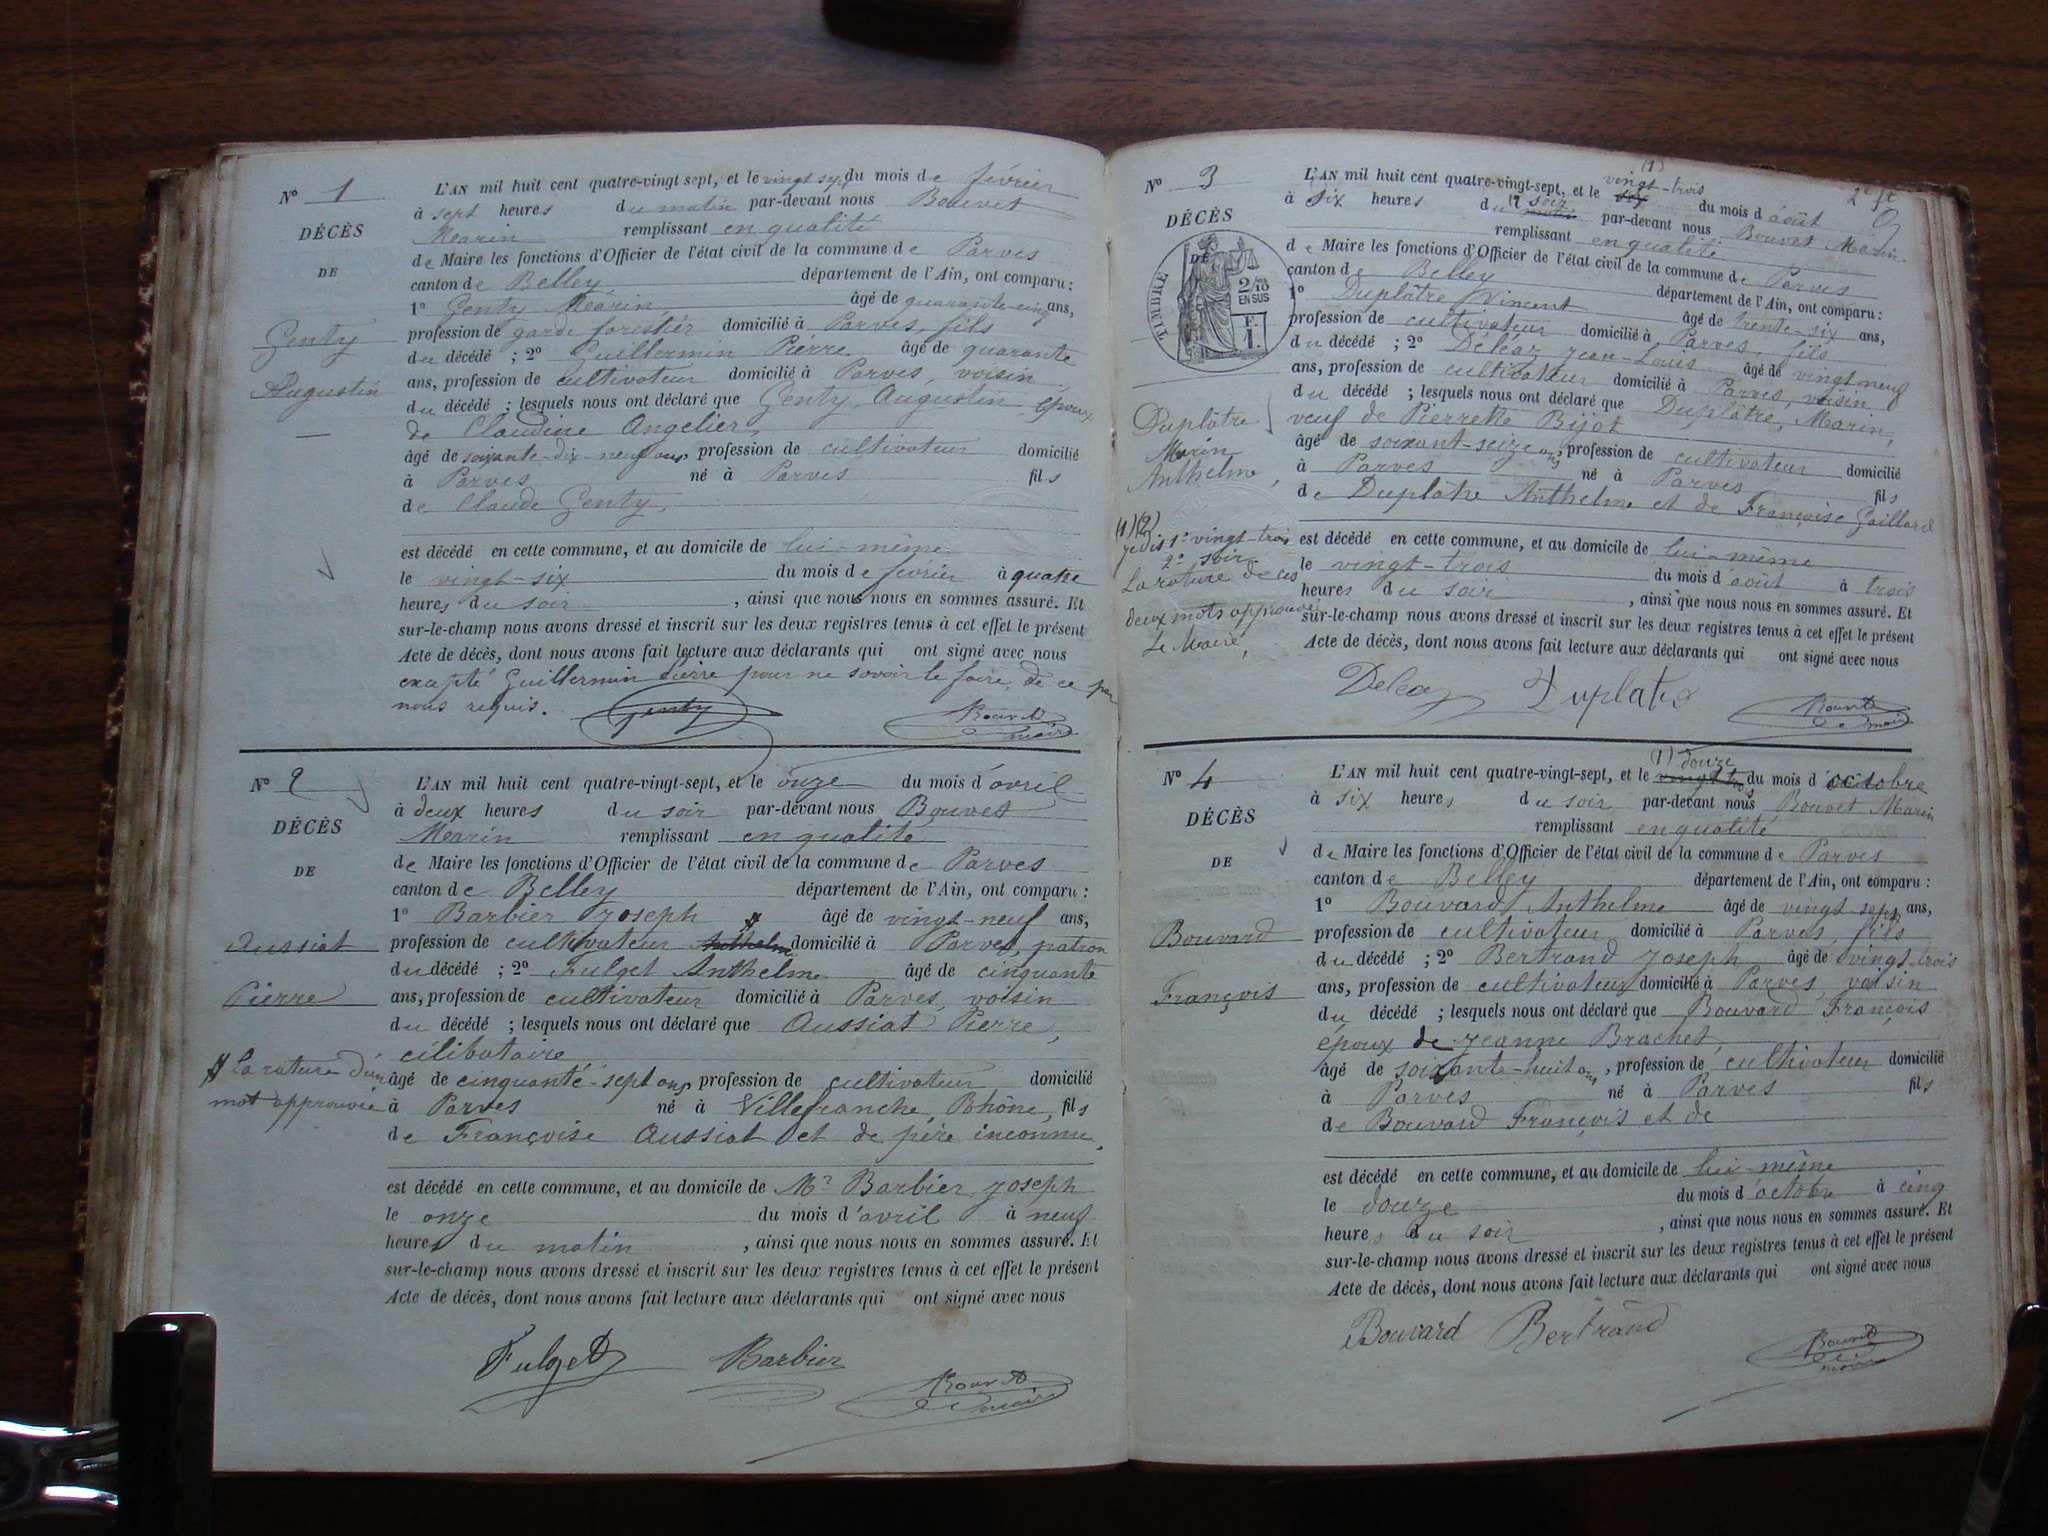 N° 1
DÉCÈS
DE
Genty
Augustin
L'AN mil huit cent quatre-vingt sept, et le vingt sept du mois de février
à sept heures du matin par-devant nous Bouvet
Marin remplissant en qualité
de Maire les fonctions d'Officier de l'état civil de la commune de Parves
canton de Belley département de l'Ain, ont comparu :
1° Genty Marin âgé de quarante-cinq ans,
profession de garde forestier domicilié à Parves, fils
du décédé ; 2° Guillermin Pierre âgé de quarante
ans, profession de cultivateur domicilié à Parves, voisin
du décédé ; lesquels nous ont déclaré que Genty, Augustin époux
de Claudine Angelier,
âgé de soixante-dix-neuf ans, profession de cultivateur domicilié
à Parves né à Parves fils
de Claude Genty,
est décédé en cette commune, et au domicile de lui-même
le vingt-six du mois de février à quatre
heures du soir, ainsi que nous nous en sommes assuré. Et
sur-le-champ nous avons dressé et inscrit sur les deux registres tenus à cet effet le présent
Acte de décès, dont nous avons fait lecture aux déclarants qui ont signé avec nous
excepté Guillermin Pierre pour ne savoir le faire, de ce par
nous requis. Genty Bouvet maire
N° 2
DÉCÈS
DE
Aussiat
Pierre
la rature d'un
mot approuvée
L'AN mil huit cent quatre-vingt-sept, et le onze du mois d'avril
à deux heures du soir par-devant nous Bouvet
Marin remplissant en qualité
de Maire les fonctions d'Officier de l'état civil de la commune de Parves
canton de Belley département de l'Ain, ont comparu :
1° Barbier Joseph âgé de vingt-neuf ans,
profession de cultivateur Anthelme domicilié à Parves, patron
du décédé ; 2° Fulget Anthelme âgé de cinquante
ans, profession de cultivateur domicilié à Parves, voisin
du décédé ; lesquels nous ont déclaré que Aussiat Pierre,
célibataire
âgé de cinquante-sept ans, profession de cultivateur domicilié
à Parves né à Villefranche, Rhône, fils
de Françoise Aussiat et de père inconnu,
est décédé en cette commune, et au domicile de Mr Barbier Joseph
le onze du mois d'avril à neuf
heures du matin, ainsi que nous nous en sommes assuré. Et
sur-le-champ nous avons dressé et inscrit sur les deux registres tenus à cet effet le présent
Acte de décès, dont nous avons fait lecture aux déclarants qui ont signé avec nous
Fulget Barbier Bouvet maire
2e ft
N° 3
DÉCÈS
DE
TIMBRE
2/10
EN SUS
F. 1.
Duplâtre
Marin
Anthelme,
(1) (2)
je dis 1° vingt-trois
2° soir
La rature de ces
deux mots approuvée
Le Maire,
(1)
vingt-trois
L'AN mil huit cent quatre-vingt-sept, et le six du mois d'août
à six heures du matin soir par-devant nous Bouvet Marin
remplissant en qualité
de Maire les fonctions d'Officier de l'état civil de la commune de Parves
canton de Belley département de l'Ain, ont comparu :
1° Duplâtre Vincent âgé de trente-six ans,
profession de cultivateur domicilié à Parves, fils
du décédé ; 2° Deléaz Jean-Louis âgé de vingt neuf
ans, profession de cultivateur domicilié à Parves, voisin
du décédé ; lesquels nous ont déclaré que Duplâtre, Marin,
veuf de Pierrette Bijot
âgé de soixant-seize ans, profession de cultivateur domicilié
à Parves né à Parves fils
de Duplâtre Anthelme et de Françoise Gaillard
est décédé en cette commune, et au domicile de lui-même
le vingt-trois du mois d'août à trois
heures du soir, ainsi que nous nous en sommes assuré. Et
sur-le-champ nous avons dressé et inscrit sur les deux registres tenus à cet effet le présent
Acte de décès, dont nous avons fait lecture aux déclarants qui ont signé avec nous
Deleaz Duplatre Bouvet maire
N° 4
DÉCÈS
DE
Bouvard
François
(1) douze
L'AN mil huit cent quatre-vingt-sept, et le vingt trois du mois d'octobre
à six heures du soir par-devant nous Bouvet Marin
remplissant en qualité
de Maire les fonctions d'Officier de l'état civil de la commune de Parves
canton de Belley département de l'Ain, ont comparu :
1° Bouvard Anthelme âgé de vingt sept ans,
profession de cultivateur domicilié à Parves, fils
du décédé ; 2° Bertrand Joseph âgé de vingt-trois
ans, profession de cultivateur domicilié à Parves, voisin
du décédé ; lesquels nous ont déclaré que Bouvard François
époux de Jeanne Brachet,
âgé de soixante-huit ans, profession de cultivateur domicilié
à Parves né à Parves fils
de Bouvard François et de
est décédé en cette commune, et au domicile de lui-même
le douze du mois d'octobre à cinq
heures du soir, ainsi que nous nous en sommes assuré. Et
sur-le-champ nous avons dressé et inscrit sur les deux registres tenus à cet effet le présent
Acte de décès, dont nous avons fait lecture aux déclarants qui ont signé avec nous
Bouvard Bertrand Bouvet maire